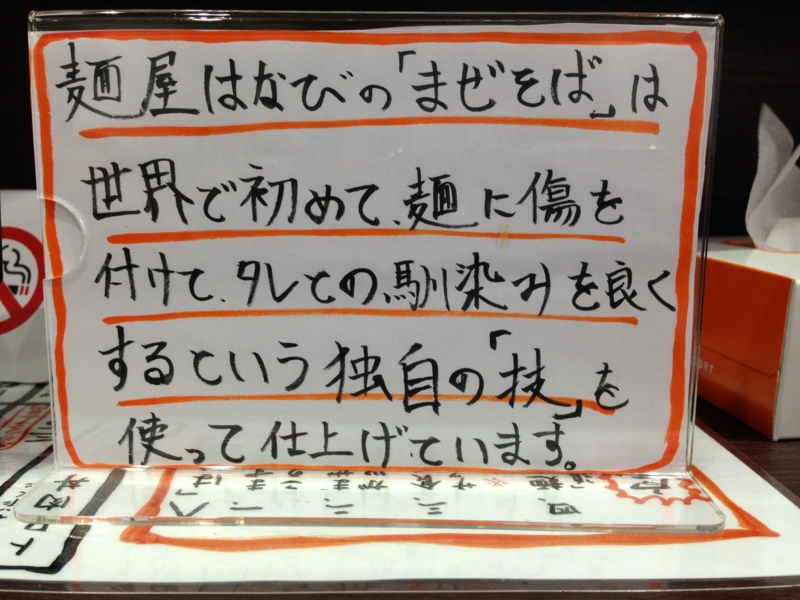 麺屋はなびの「まぜそば」は
世界で初めて、麺に傷を
付けて、タレとの馴染みを良く
するという独自の「技」を
使って仕上げています。